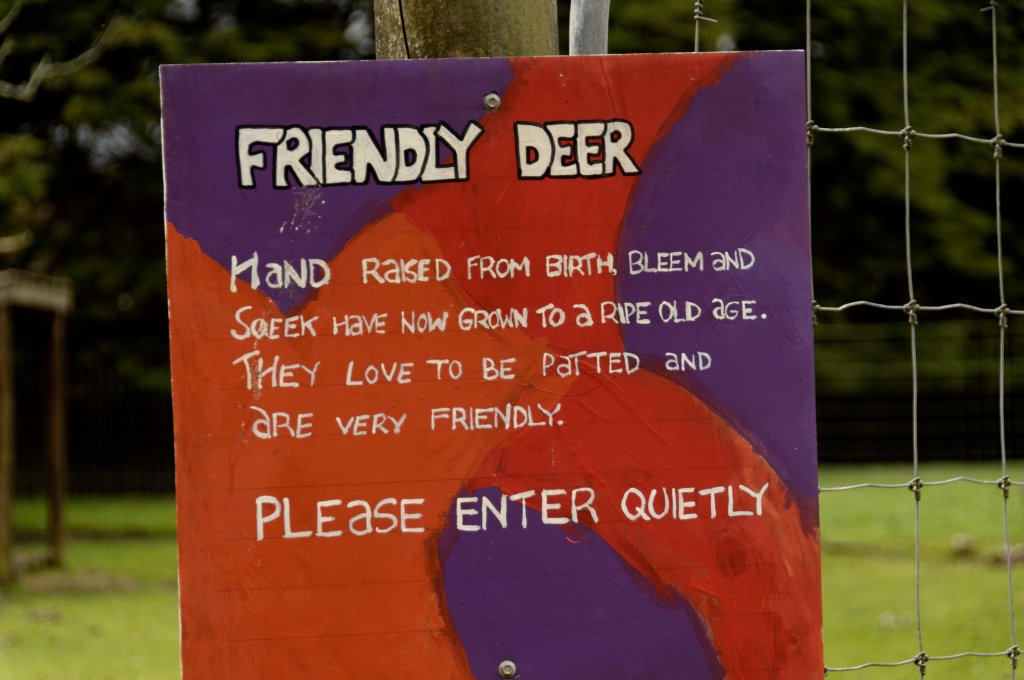 FRIENDLY DEER
HAND RAISED FROM BIRTH, BLEEM AND
SQEEK HAVE NOW GROWN TO A RIPE OLD AGE.
THEY LOVE TO BE PATTED AND
ARE VERY FRIENDLY.
PLEASE ENTER QUIETLY